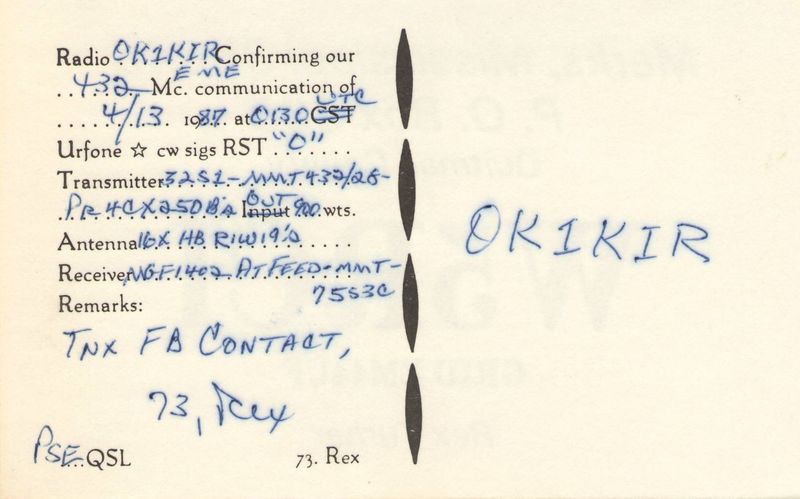 Radio OK1KIR Confirming our
EME
432 Mc. communication of
UTC
4/13 1987 at 0130 CST
Urfone ☆ cw sigs RST "O"
Transmitter 32S1-MMT432/28-
OUT
Pr 4CX250B's Input 900 wts.
Antenna 16X HB RIW19's
Receiver NGF1402 AT FEED-MMT-
75S3C
Remarks:
TNX FB CONTACT,
73, Rex
PSE QSL
73. Rex
OK1KIR